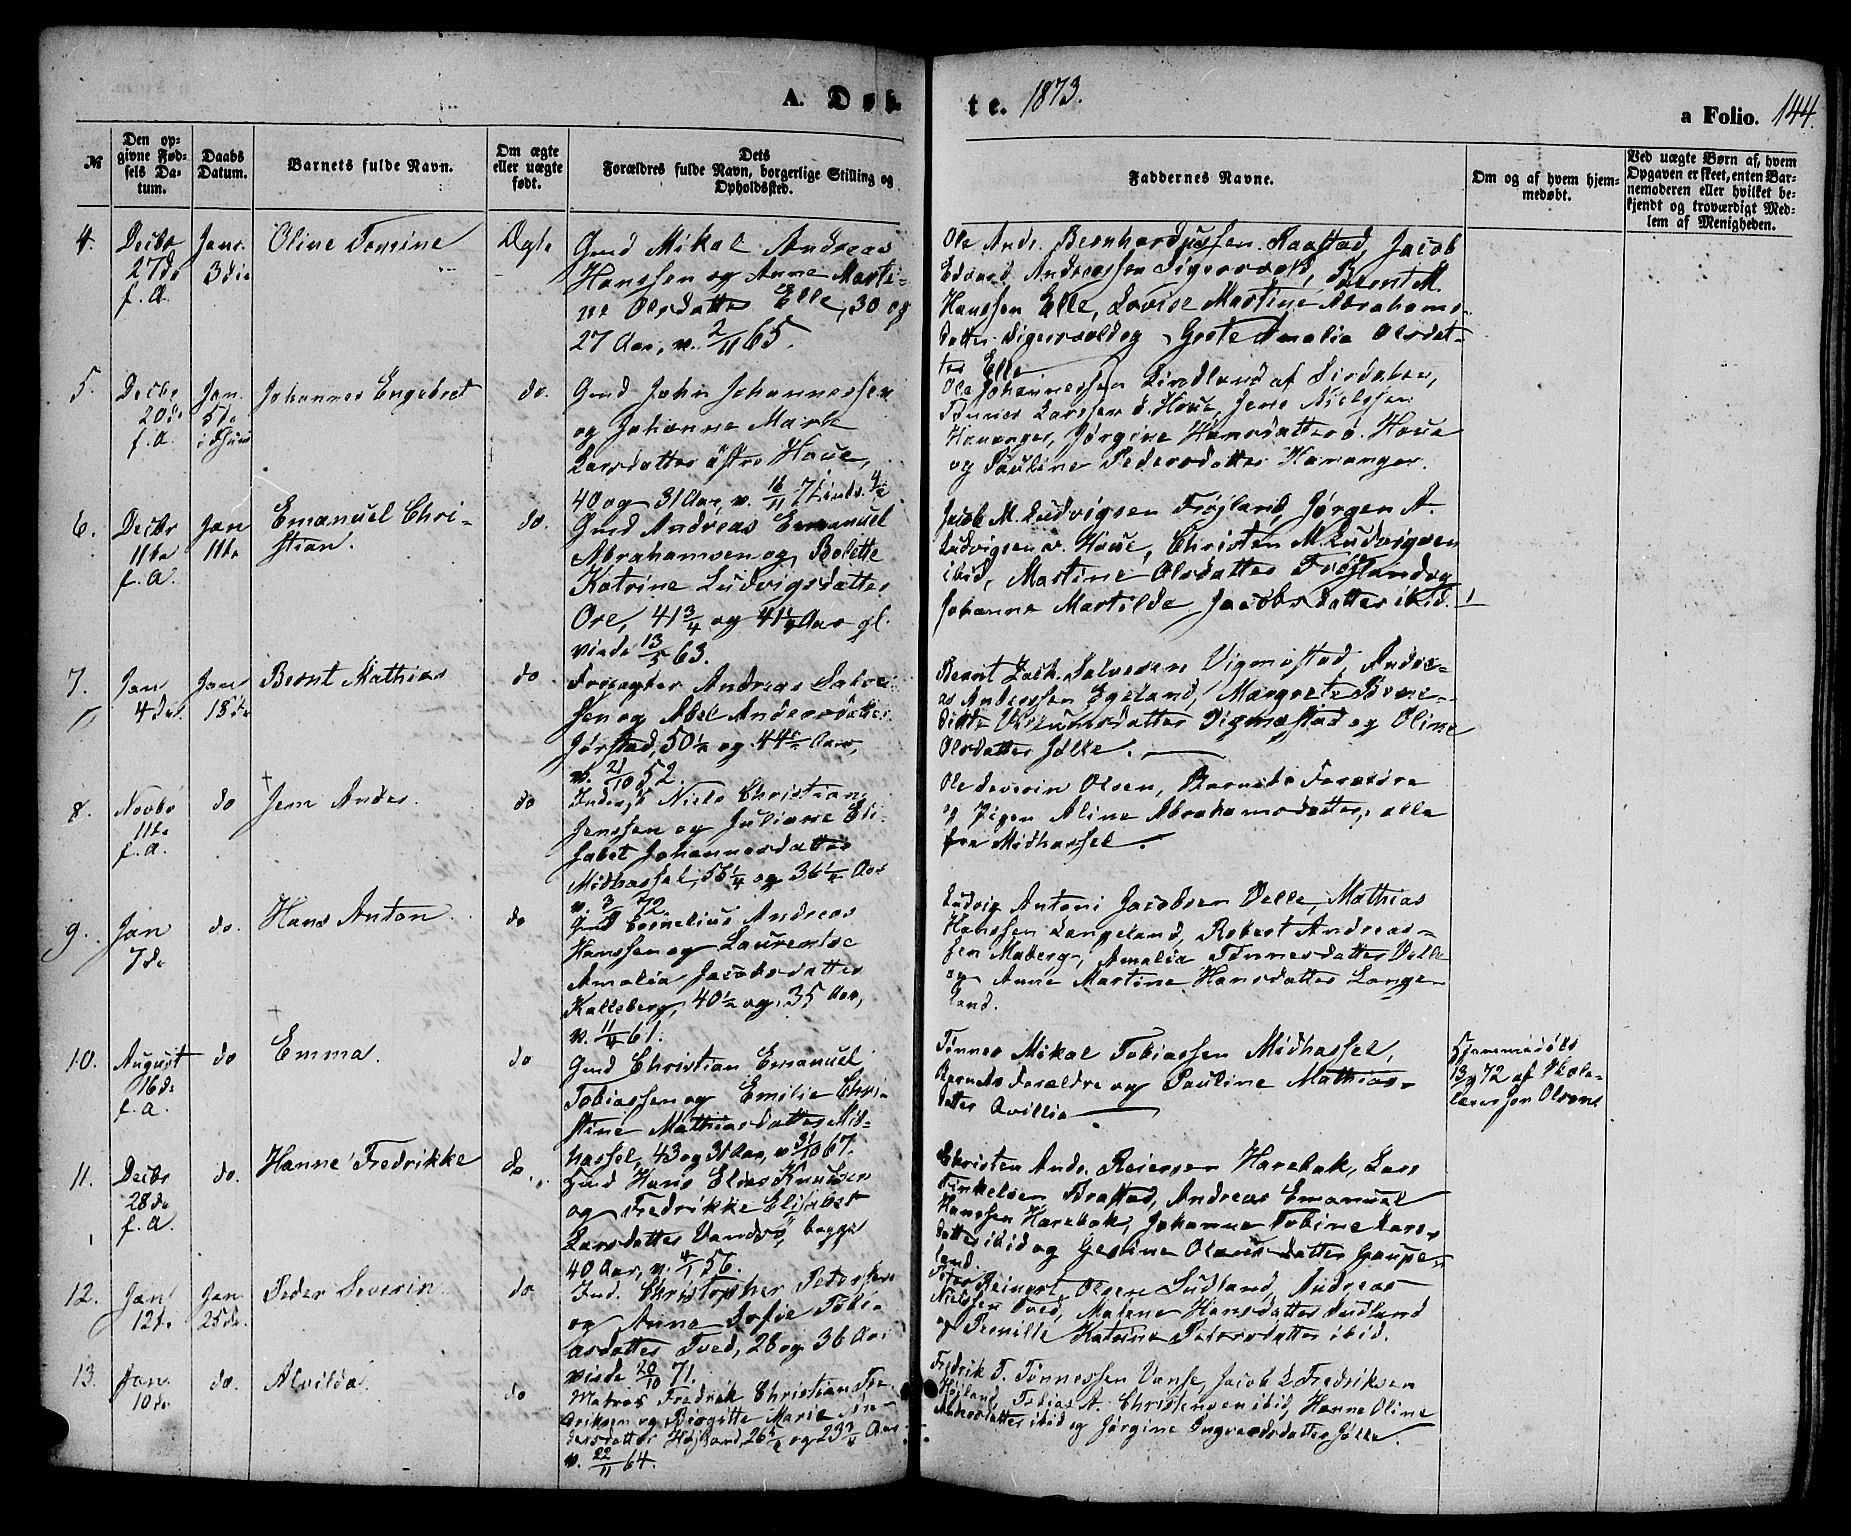 A. Døb-
te. 1873.
a Folio. 144.
№
Den op-
givne Fød-
sels Da-
tum.
Daabs
Datum.
Barnets fulde Navn.
Om ægte
eller uægte
født.
Dets
Forældres fulde Navn, borgerlige Stilling og
Opholdssted.
Faddernes Navne.
Om og af hvem hjem-
medøbt.
Ved uægte Børn af, hvem
Opgaven er skeet, enten Bar-
nemoderen eller hvilket be-
kjendt og troværdigt Med-
lem af Menigheden.
4.
Decbr
27de
f. A.
Janr.
3die
Oline Tomine
Ægte
Gmd Mikal Andreas
Hanssen og Anne Marti-
ne Olsdatter Elle, 30 og
27 Aar, v. 2/11 65.
Ole Andr. Bernhardussen Raastad, Jacob
Edvard Andreassen Sigersvold, Bernt M.
Hanssen Elle, Lovise Martine Abrahams-
datter Sigersvold og Geste Amalia Olsdat-
ter Elle
5.
Decbr
20de
f. A.
Jan.
5te
Johannes Engebret
do.
Gmd John Johannessen
og Johanne Mark
Larsdatter østre Houe,
40 og 31 Aar, v. 16/11 71
Ole Johannessen Lindland af Sirdalen,
Tønnes Larssen ø. Houe, Jens Nielssen
Hananger, Jørgine Hansdatter ø. Houe
og Pauline Pedersdatter Hananger.
6.
Decbr
11te
f. A.
Jan
11te
Emanuel Chri-
stian.
do.
Gmd Andreas Emanuel
Abrahamsen og Bolette
Katrine Ludvigsdatter
Ore, 41 3/4 og 41 1/4 Aar gl.
viede 13/5 63.
Jacob M. Ludvigsen Frøjland, Jørgen A.
Ludvigsen v. Houe, Christen M. Ludvigsen
ibid, Martine Olsdatter Frøjland og
Johanne Martilde Jacobsdatter ibid.
7.
Jan
4de
Jan
18de
Bernt Mathias
do
Andreas Salve-
sen og Abel Andersdatter
Jørstad, 50 1/2 og 44 Aar,
v. 21/10 52.
Bernt Zach. Salvesen Vigmostad, Andre-
as Anderssen Egeland, Margrete
Villumsdatter Vigmostad og Oline
Olsdatter Jølle.
8.
Novbr
11te
f. A.
do
Jens Andes.
do
Inders Niels Christian
Jenssen og Juliane Eli-
sabet Johannesdatter
Midhassel, 1/4 og 36 1/4 Aar
v. 3/7 72.
Ole Severin Olsen, Barnets Forældre
og Pigen Aline Abrahamsdatter, alle
fra Midhassel.
9.
Jan
7de
do.
Hans Anton
do
Gmd Cornelius Andreas
Hanssen og Laurentse
Amalia Jacobsdatter
Kalleberg, 40 1/2 og 35 Aar,
v. 11/4 61.
Ludvig Antoni Jacobsen Velle, Mathias
Hanssen Langeland, Robert Andreas-
sen Maberg, Amalia Tønnesdatter Velle
og Anne Martine Hansdatter Lange-
land.
10.
August
16de
f. A.
do
Emma.
do
Gmd Christian Emanuel
Tobiassen og Emilie Chri-
stine Mathiasdatter Mid-
hassel, 43 og 31 Aar, v 31/10 67.
Tønnes Mikal Tobiassen Midhassel,
Barnets Forældre og Pauline Mathias-
datter Qvillia
Hjemmedøbt
13/9 72 af Skole-
lærer
11.
Decbr
28de
f. A.
do.
Hanne Fredrikke
do.
Gmd Hans Elias Knudsen
og Fredrikke Elisabet
Larsdatter Vandsø, begge
40 Aar, v. 4/1 56.
Christen Andr. Reiersen Harebak, Lars
Tinkelsen Brastad, Andreas Emanuel
Hanssen Harebak, Johanne Tobine Lars-
datter ibid og Gesine Olausdatter Gaupe-
land.
12.
Jan
12te
Jan
25de.
Peder Severin
do
Ind. Christopher Petersen
og Anna Sofie Tobi-
asdatter Tved, 28 og 36 Aar
viede 20/10 71.
Peter Reinert Olsen Sudland, Andreas
Nielssen Tved, Malene Hansdatter Sudland
og Pernille Katrine Petersdatter ibid.
13.
Jan.
10de
do.
Alvilda.
do
Matros Fredrik Christian Fre-
driksen og Birgitte Marie An-
dersdatter Højland, 26 og 23 Aar
v. 22/11 64.
Fredrik T. Tønnessen Vanse, Jacob L Fredriksen
Højland, Tobias A. Christensen ibid, Hanne Oline
Andersdatter ibid og Jørgine Ingvaldsdatter Jølle.